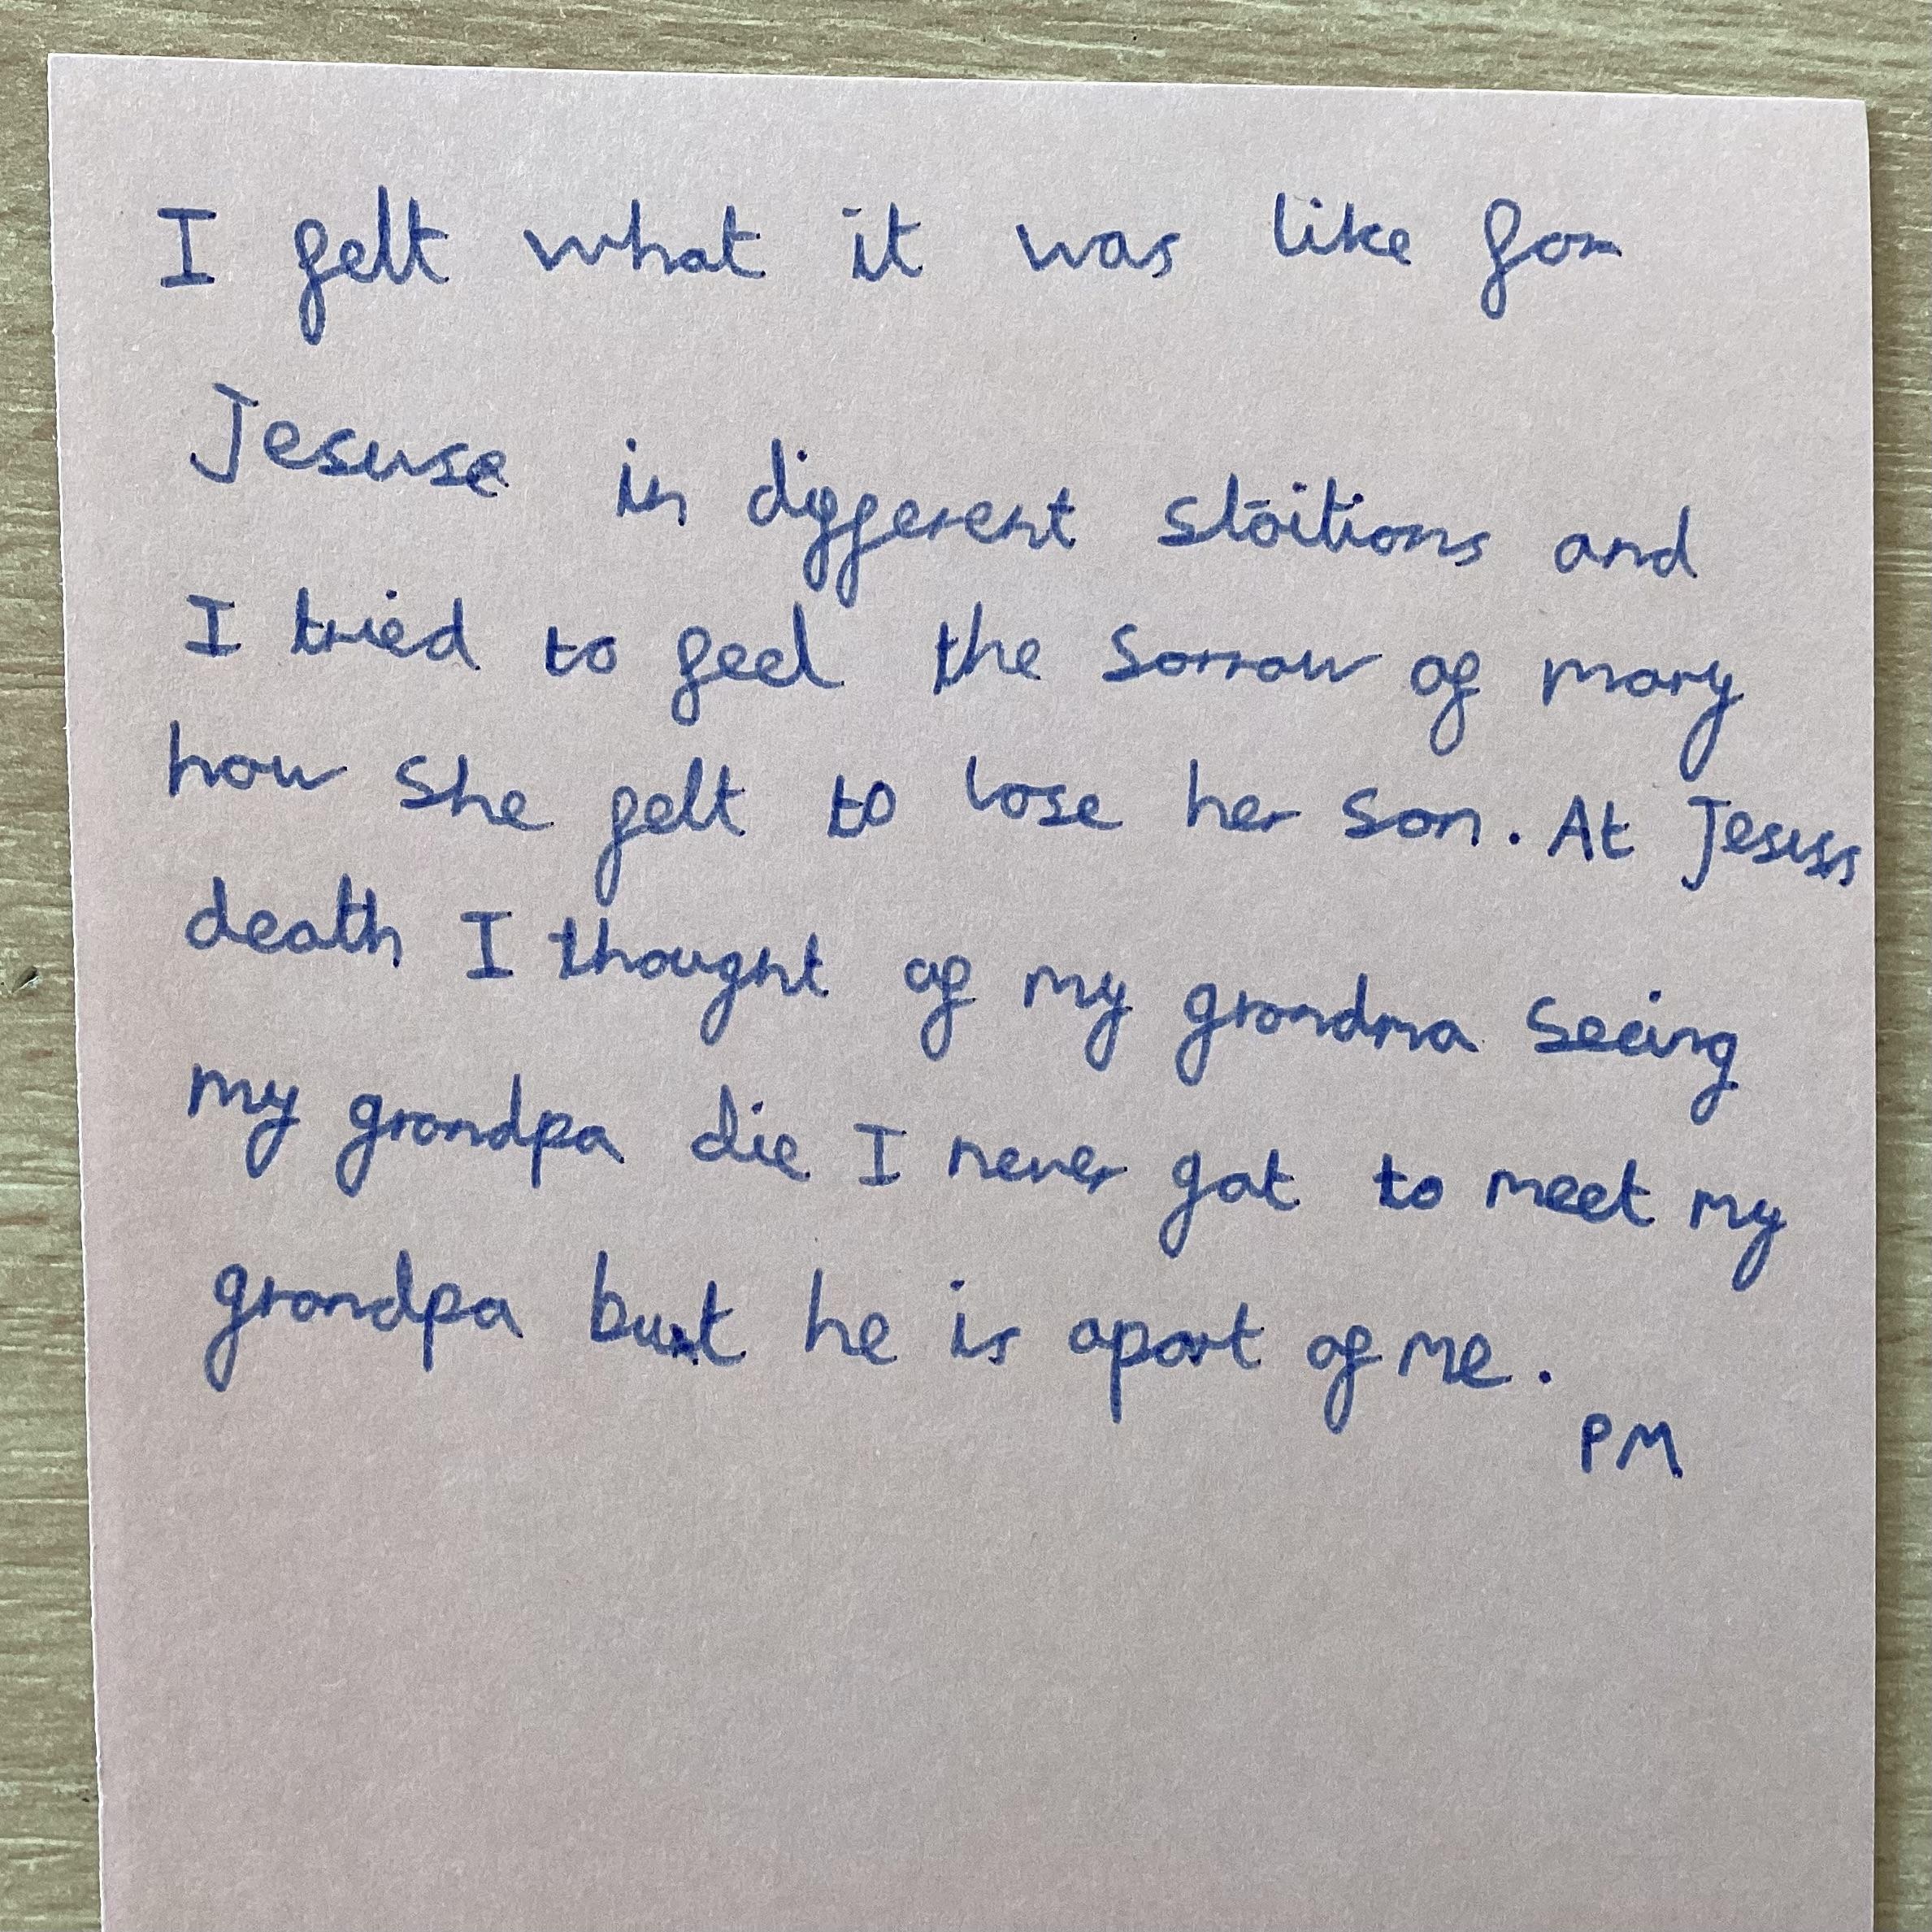 I felt what it was like for
Jesuse in different stoitions and
I tried to feel the sorrow of mary
how she felt to lose her son. At Jesuss
death I thought of my grandma seeing
my grandpa die I never got to meet my
grandpa but he is apart of me.
PM